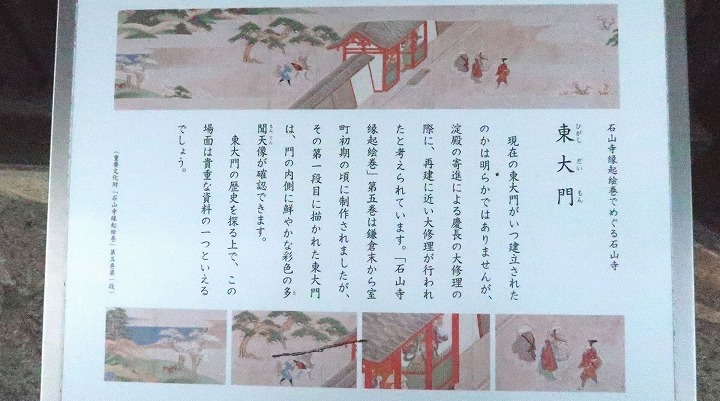 石山寺縁起絵巻でめぐる石山寺
東大門
ひがし だい もん
現在の東大門がいつ建立された
のかは明らかではありませんが、
淀殿の寄進による慶長の大修理の
際に、再建に近い大修理が行われ
たと考えられています。「石山寺
縁起絵巻」第五巻は鎌倉末から室
町初期の頃に制作されましたが、
その第一段目に描かれた東大門
は、門の内側に鮮やかな彩色の多
聞天像が確認できます。
た
もんてん
東大門の歴史を探る上で、この
場面は貴重な資料の一つといえる
でしょう。
(重要文化財「石山寺縁起絵巻」第五巻第一段)